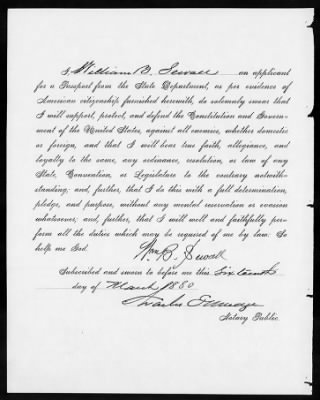 I, William B. Sewall an applicant
for a Passport from the State Department, as per evidence of
American citizenship furnished herewith, do solemnly swear that
I will support, protect, and defend the Constitution and Govern-
ment of the United States, against all enemies, whether domestic
or foreign, and that I will bear true faith, allegiance, and
loyalty to the same, any ordinance, resolution, or law of any
State, Convention, or Legislature to the contrary notwith-
standing; and, further, that I do this with a full determination,
pledge, and purpose, without any mental reservation or evasion
whatsoever; and, further, that I will well and faithfully per-
form all the duties which may be required of me by law: So
help me God.
Wm B. Sewall
Subscribed and sworn to before me this Sixteenth
day of March 1880
Charles
Notary Public.